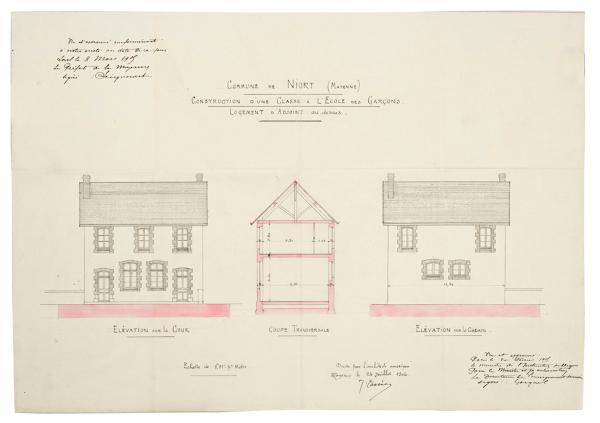 Vu et
conformément
à notre arrêté en date de ce jour
Laval le 8 Mars 1905
Le Préfet de la Mayenne
Signé :
COMMUNE DE NIORT (MAYENNE)
CONSTRUCTION D'UNE CLASSE À L'ECOLE DES GARÇONS.
LOGEMENT D'ADJOINT au-dessus.
ELÉVATION SUR LA COUR
COUPE TRANSVERSALE
ELÉVATION SUR LE
Echelle de
pr Mètre
Dressé par l'architecte soussigné
Mayenne le 26 Juillet 1904
Vu et approuvé
Paris le 20 Février 1905
Le ministre de l'Instruction publique
Pour le Ministre et par autorisation
Le Directeur de l'enseignement primaire
Signé :